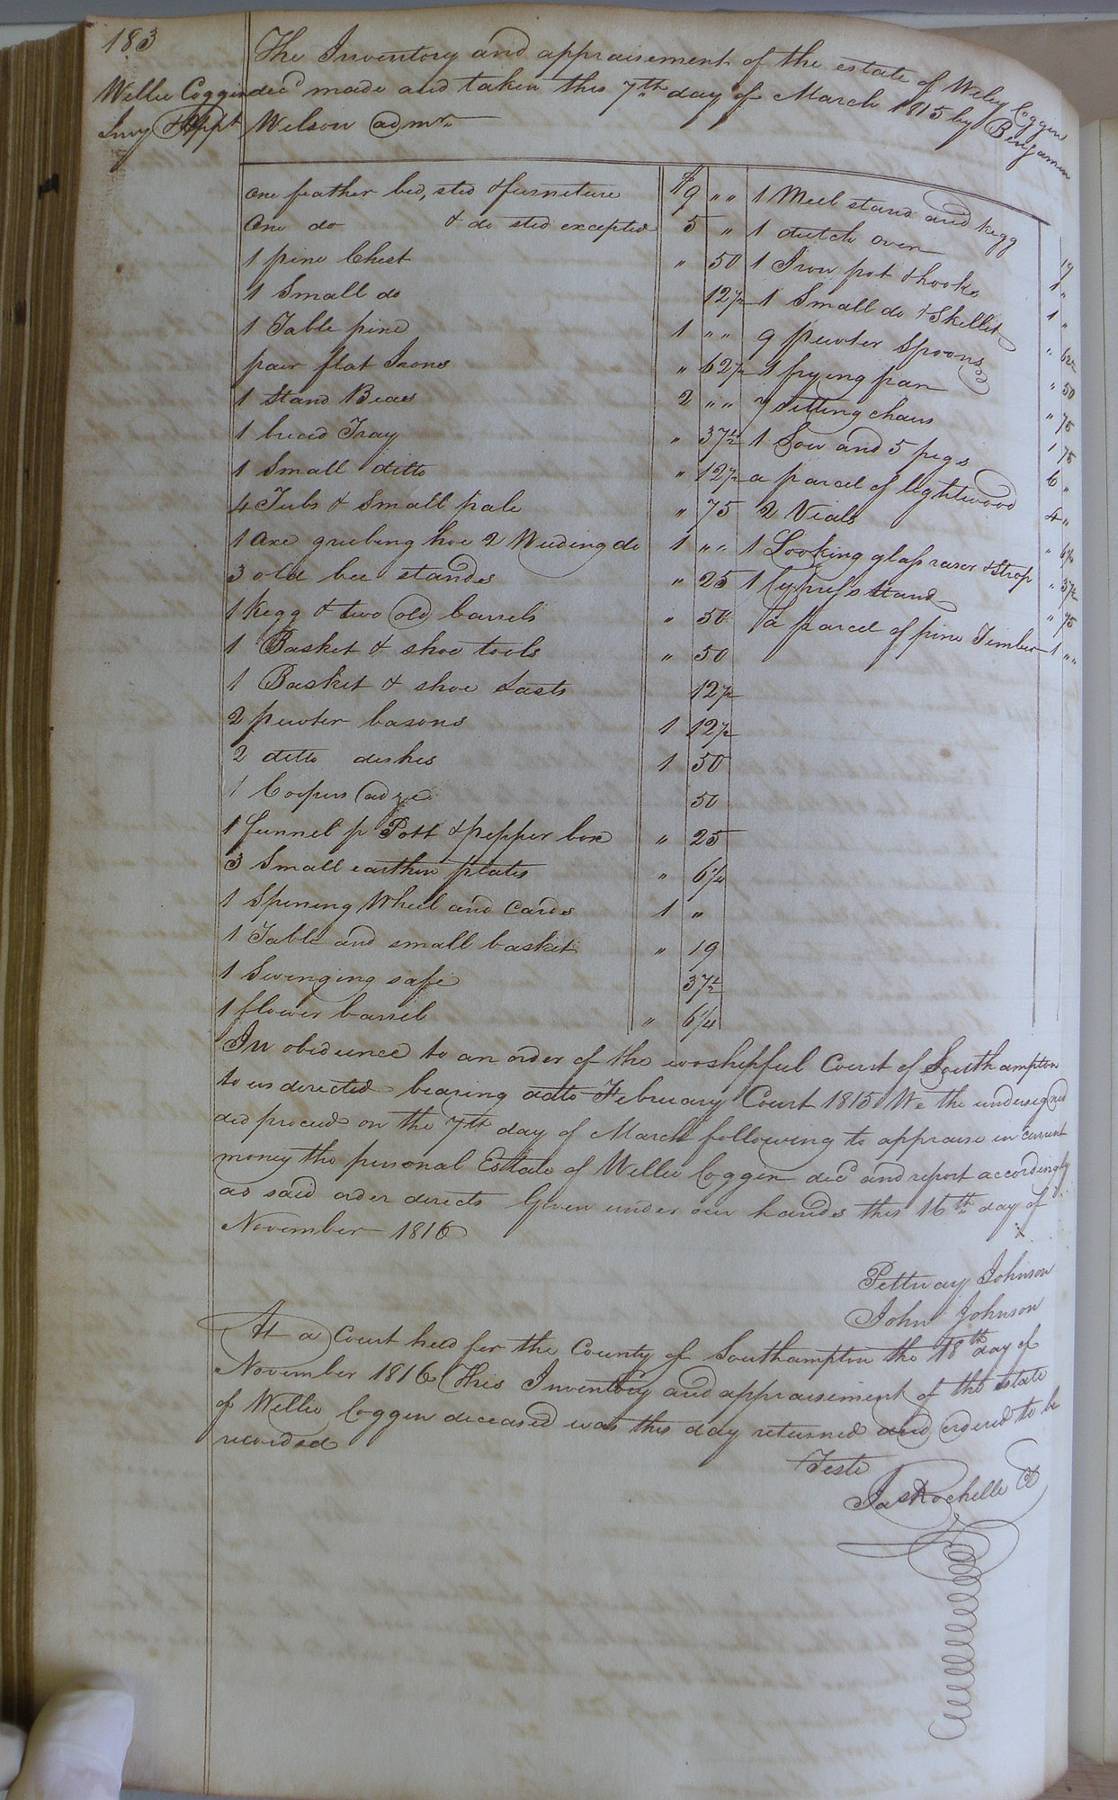 183
The Inventory and appraisement of the estate of Wiley Coggin
Willie Coggin decd made and taken this 7th day of March 1815 by Benjamin
Invy & Appt Wilson admr
one feather bed, sted & furneture $9 " "
One do & do sted excepted 5 "
1 pine Chest " 50
1 Small do 12½
1 Table pine 1 " "
pair flat Irons " 62½
1 Stand Bees 2 " "
1 bread Tray " 37½
1 Small ditto " 12½
4 Tubs & small pale " 75
1 axe grubing hoe 2 Weeding do 1 " "
3 old bee standes " 25
1 kegg & two old barrels " 50
1 Basket & shoe tools " 50
1 Basket & shoe Lasts 12½
2 pewter basons 1 12½
2 ditto dishes 1 50
1 Coopers adze 50
1 funnel p Pott & pepper box " 25
3 Small earthen plates " 6¼
1 Spining Wheel and Cards 1 "
1 Table and small basket " 19
1 Swinging safe 37½
1 flower barrel " 6¼
1 Meel stand and kegg 19
1 dutch oven 1 "
1 Iron pot & hooks 1 "
1 Small do & Skillet " 62½
9 pewter Spoons " 50
1 frying pan " 75
7 sitting chairs 1 75
1 Sow and 5 pegs 6 "
a parcel of lightwood 4 "
2 Vials " 6¼
1 Looking glass rasor & strop " 37½
1 Cypress stand " 75
a parcel of pine Timber 1 " "
In obedience to an order of the worshipful Court of Southampton
to us directed bearing date February Court 1815 We the undersigned
did proceed on the 7th day of March following to appraise in current
money the personal Estate of Willie Coggin decd and report accordingly
as said order directs Given under our hands this 16th day of
November 1816
Pettway Johnson
John Johnson
At a Court held for the County of Southampton the 18th day of
November 1816 This Inventory and appraisement of the estate
of Willie Coggin deceased was this day returned and ordered to be
recorded
Teste
Jas Rochelle C